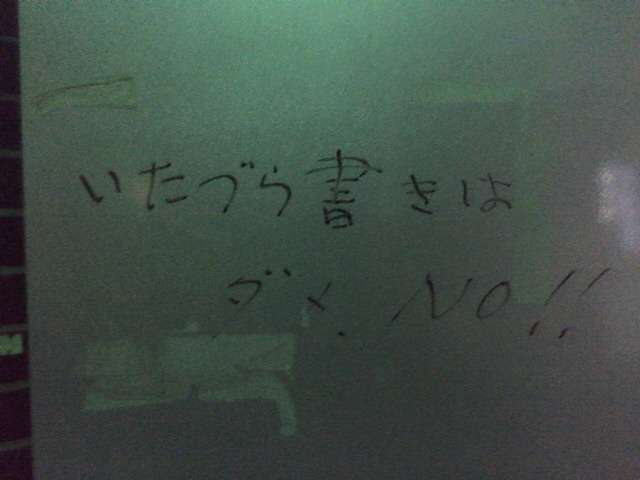 いたづら書きは
ダメ. NO!!